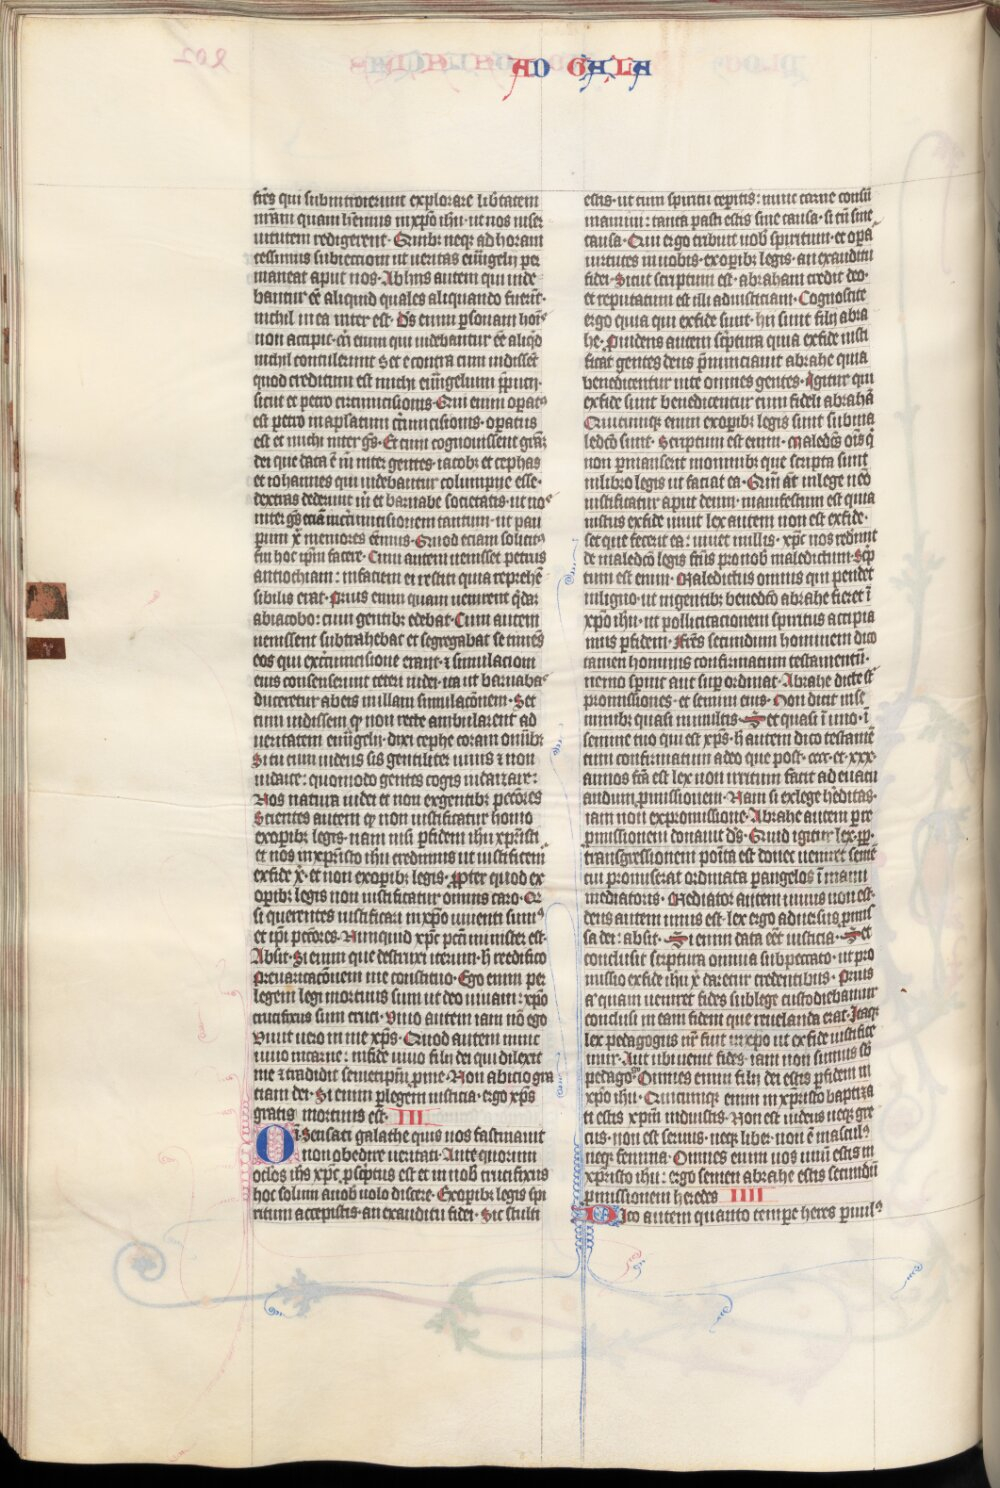 AD GALA
fr̄es qui subintroierunt explorare lib̄tatem
nr̄am quam hēmus in xp̄o ih̄u · ut nos in ser
uitutem redigerent · Quibꝫ neqꝫ ad horam
cessimus subiectioni ut ueritas eūgelij per
maneat aput nos · Ab hijs autem qui uide
bantur eē aliquid quales aliquando fuerīt ·
nichil mea inter est · Ds̄ enim ꝑsonam hoīs
non accipit · m̄ enim qui uidebantur eē aliqd̄
nichil contulerunt Set e contra cum uidissēt
quod creditum est michi eūgelium p̄pucij ·
sicut et petro circumcisionis · Qui enim oꝑatꝰ
est petro in apl̄atum cir̄cumcisionis · oꝑatus
est et michi inter gēs · Et cum cognouissent grām
dei que data ē m̄ inter gentes · iacobꝰ et cephas
et iohannes qui uidebantur columpne esse ·
dextras dederunt m̄ et barnabe societatis · ut nos
inter gēs ipsi aūt in circumcisionem tantum · ut pau
perum x̄ memores eēmus · Quod eciam solicitꝰ
fui hoc ip̄m facere · Cum autem uenisset petrus
antiochiam : in faciem ei restiti quia reprehē
sibilis erat · Prius enim quam uenirent q̄dā
ab iacobo : cum gentibꝫ edebat · Cum autem
uenissent subtrahebat et segregabat se timēs
eos qui ex circumcisione erant · ⁊ simulacioni
eius consenserunt ceteri iudei · ita ut barnabas
duceretur ab eis in illam simulacōnem · Set
cum uidissem qꝫ non recte ambularent ad
ueritatem eūgelij · dixi cephe coram om̄ibꝫ
Si tu cum iudeus sis gentiliter uiuis ⁊ non
iudaice : quomodo gentes cogis iudaizare :
Nos natura iudei et non ex gentibꝫ pctōres
Scientes autem qꝫ non iustificatur homo
ex oꝑibꝫ legis · nam nisi ꝑ fidem ih̄u xpr̄isti
et nos in xpr̄isto ih̄u credimus ut iustificem̄
ex fide x̄ · et non ex oꝑibꝫ legis · ꝓpter quod ex
oꝑibꝫ legis non iustificatur omnis caro · Q̄
si querentes iustificari in xp̄o inuenti sumꝰ
et ip̄i pctōres · Numquid xp̄c pctī minister est ·
Absit · Si enim que destruxi iterum · h̄ reedifico
preuaricacōnem me constituo · Ego enim per
legem legi mortuus sum ut deo uiuam : xp̄o
crucifixus sum cruci · Viuo autem iam nō ego
Viuit uero in me xp̄s · Quod autem nunc
uiuo in carne : in fide uiuo filij dei qui dilexit
me ⁊ tradidit semetip̄m ꝑ me · Non abicio gra
ciam dei · Si enim ꝑ legem iusticia · ergo xp̄s
gratis mortuus est · III
O insensati galathe quis uos fascinauit
non obedire ueritati · Ante quorum
oclos ih̄s xp̄c ꝓscriptus est et in uob̄ crucifixus
hoc solum a uob̄ uolo discere · Ex oꝑibꝫ legis spi
ritum accepistis · an ex auditu fidei · Sic stulti
estis · ut cum spiritu ceperitis : nunc carne consū
mamini : tanta passi estis sine causa · si tn̄ sine
causa · Qui ergo tribuit uob̄ spiritum · et opa
uirtutes in uobis · ex oꝑibꝫ legis · an ex auditu
fidei · Sicut scriptum est · abraham credit deo ·
et reputatum est illi ad iusticiam · Cognoscite
ergo quia qui ex fide sunt · hij sunt filij abra
he · Prouidens autem sc̄ptura quia ex fide iusti
ficat gentes deus p̄nunciauit abrahe quia
benedicentur in te omnes gentes · Igitur qui
ex fide sunt benedicentur cum fideli abrahā
Quicumque enim ex oꝑibꝫ legis sunt sub ma
ledcō sunt · Scriptum est enim · Maledc̄s oīs q̄
non ꝑmanserit in omnibꝫ que scripta sunt
in libro legis ut faciat ea · Qm̄ aūt in lege nēo
iustificatur aput deum · manifestum est quia
iustus ex fide uiuit lex autem non est ex fide ·
set qui fecerit ea : uiuet in illis · xp̄c nos redimit
de maledcō legis fc̄us pro nob̄ maledictum · Sc̄p
tum est enim · Maledictus omnis qui pendet
in ligno · ut in gentibꝫ benedcō abrahe fieret ī
xp̄o ih̄u · ut pollicitacionem spiritus accipia
mus ꝑ fidem · Fr̄es secundum hominem dico
tamen hominis confirmatum testamentū ·
nemo spernit aut suꝑ ordinat · Abrahe dicte st̄
promissiones · et semini eius · Non dicit in se
minibꝫ quasi in multis · Set quasi ī uno · ī
semine tuo qui est xp̄s · h̄ autem dico testamē
tum confirmatum a deo que post · cccc · et · xxx ·
annos fc̄a est lex non irritum facit ad euacu
andum ꝓmissionem · Nam si ex lege hēditas ·
iam non ex promissione · Abrahe autem per re
ꝓmissionem donauit ds̄ · Quid igitur lex · ꝓp ·
transgressionem posita est donec ueniret semē
cui promiserat ordinata per angelos ī manu
mediatoris · Mediator autem unius non est ·
deus autem unus est · lex ergo aduersus ꝓmis
sa dei : absit · Si enim data eēt iusticia · Set
conclusit scriptura omnia sub peccato · ut pro
missio ex fide ih̄u x̄ daretur credentibus · Prius
aūt quam ueniret fides sub lege custodiebamur
conclusi in eam fidem que reuelanda erat · Itaqꝫ
lex pedagogus nr̄ fuit in xp̄o ut ex fide iustifice
mur · Aut ubi uenit fides · iam non sumus sb̄
pedagogo · Omnes enim filij dei estis ꝑ fidem in
xp̄o ih̄u · Quicumqꝫ enim in xpristo baptiza
ti estis xpr̄m induistis · Non est iudeus neqꝫ gre
cus · non est seruus · neqꝫ liber · non ē masculꝰ
neqꝫ femina · Omnes enim uos unū estis in
xpristo ih̄u : ergo semen abrahe estis secundū
ꝓmissionem heredes IIII
Dico autem quanto tempore heres paruulꝰ